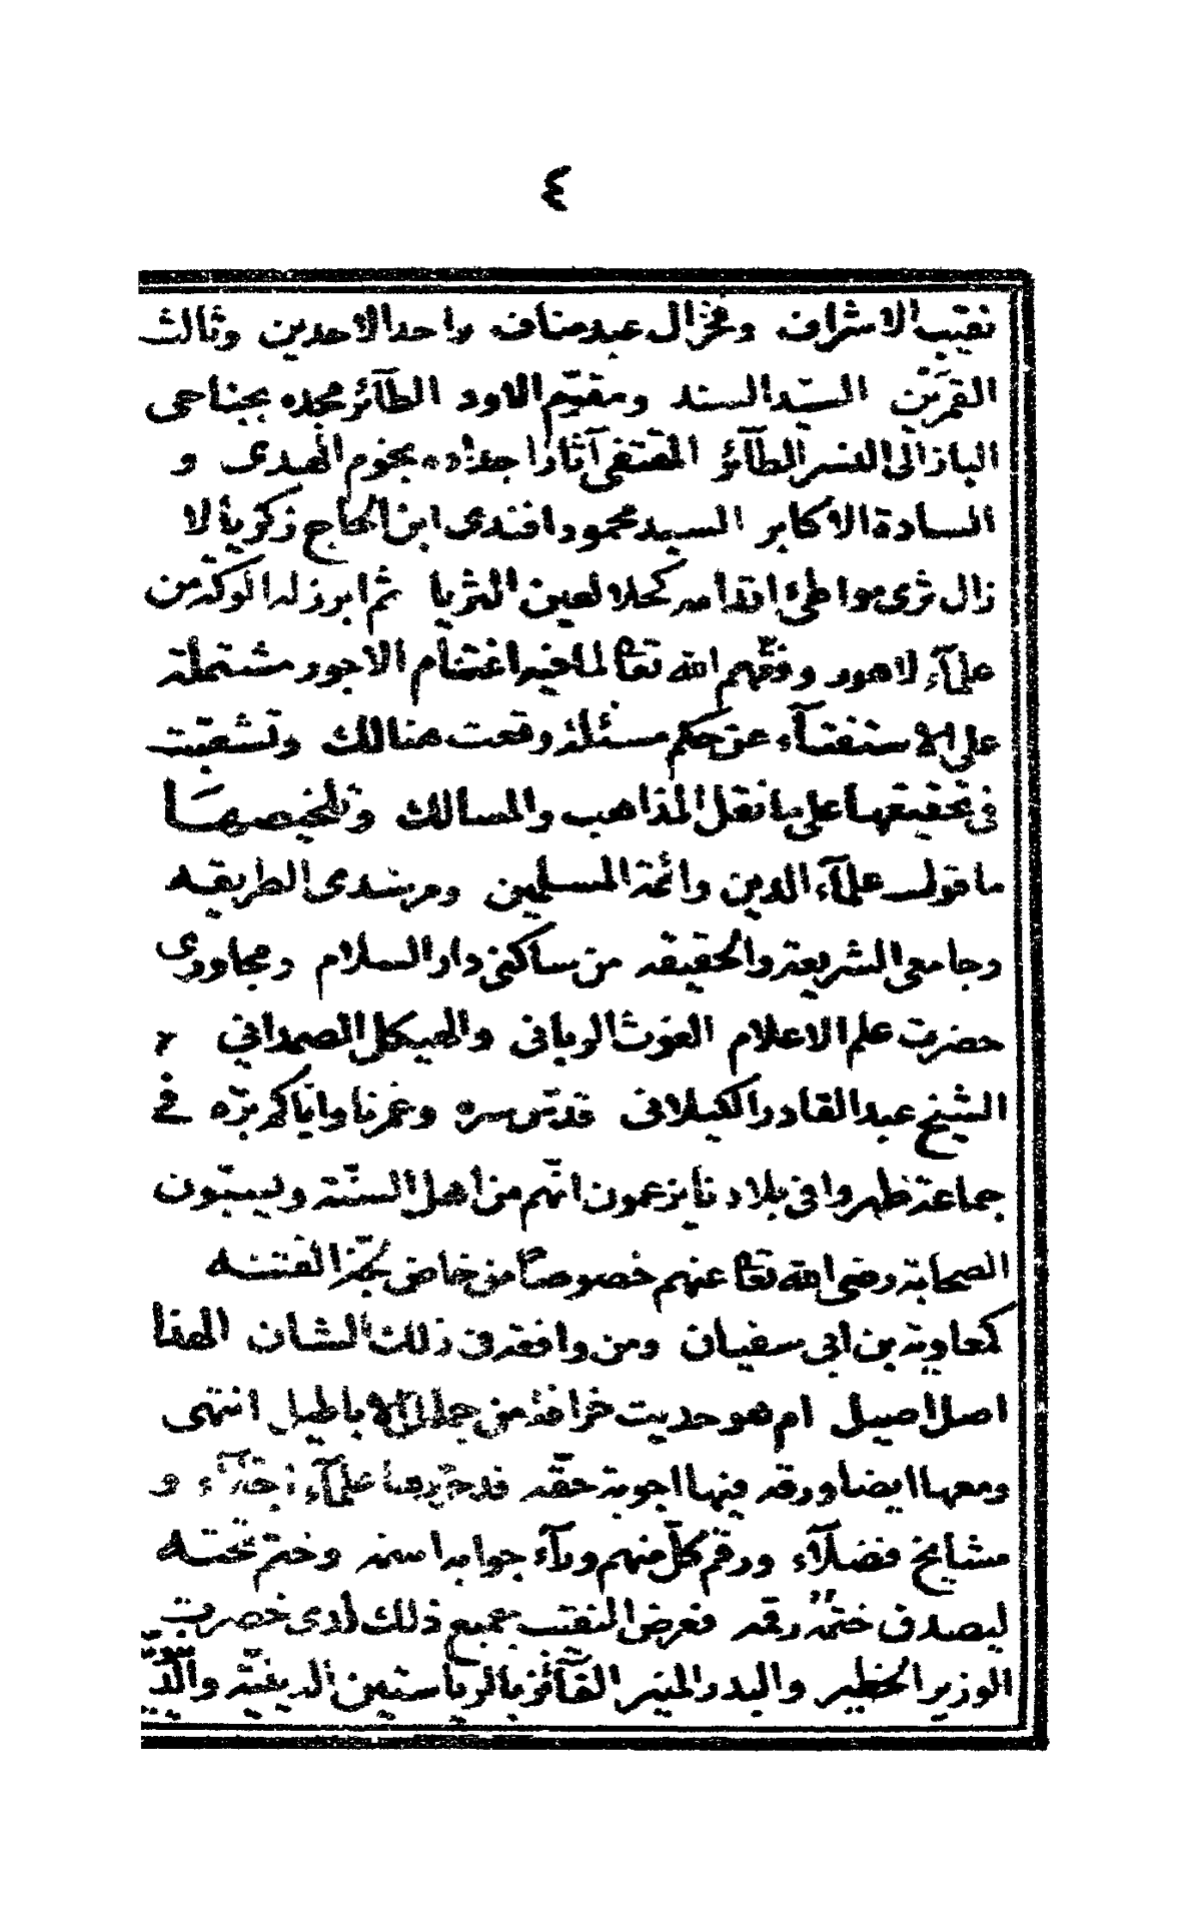 ٤
نقيب الاشراف وفخر ال عبد مناف واحد الاحدين وثالث
القمرين السيد السند ومقيم الاود الطآئر مجده بجناحى
الباز الى النسر الطآئر المقتفى آثار اجداده بخوم الهدى و
السادة الاكابر السيد محمود افندى ابن الحاج زكريا لا
زال ثرى مواطئ اقدامه كحلا لعين الثريا ثم ابرز له الوكة من
علمآء لاهور وفقهم الله تعا لما خير اغتنام الاجور مشتملة
على الاستفتآء عن حكم مسئلة وقعت هنالك وتشعبت
فى تحقيقها على ما نقل المذاهب والمسالك وتلخيصها
ما قول علمآء الدين وائمة المسلمين ومرشدى الطريقه
وجامعى الشريعة والحقيقه من ساكنى دار السلام ومجاورى
حضرت علم الاعلام الغوث الربانى والهيكل الصمداني
الشيخ عبد القادر الكيلانى قدس سره وغمرنا واياكم بره فى
جماعة ظهروا فى بلادنا يزعمون انهم من اهل السنة ويسبون
الصحابة رضى الله تعا عنهم خصوصا من خاض بحر الفتنه
كمعاوية بن ابى سفيان ومن وافقه فى ذلك الشان الهذا
اصل اصيل ام هو حديث خرافة من جملة الاباطيل انتهى
ومعها ايضا ورقه فيها اجوبة حقه قد حررها علمآء اجلآء و
مشايخ فضلآء ورقم كل منهم ورآء جوابه اسمه وختم تحته
ليصدق ختمه رقمه فعرض النقيب جميع ذلك لدى حضرت
الوزير الخطير والبدر المنير الفآئز بالرياستين الدينية والدنيـ